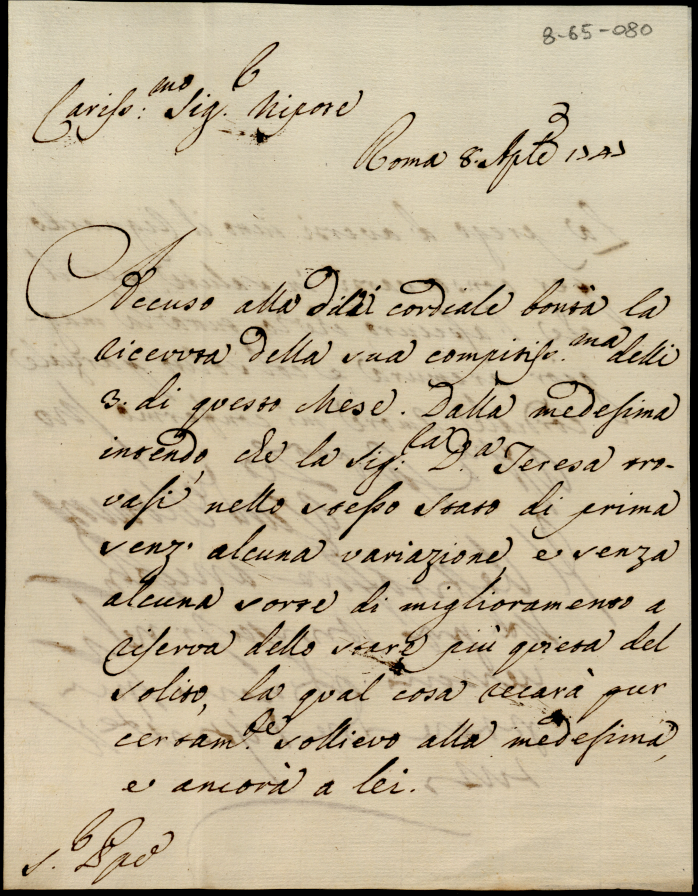 8-65-080
Cariss:mo Sig.r Nipote
Roma 8. Aple
Accuso alla di lei cordiale bontà la
ricevuta della sua compitiss.ma delli
3. di questo Mese. Dalla medesima
intendo, che la Sig:ra D.a Teresa tro-
vasi nello stesso stato di prima
senz' alcuna variazione, e senza
alcuna sorte di miglioramento a
riserva dello stare più quieta del
solito, la qual cosa recarà pur
certam.te sollievo alla medesima,
e ancora a lei.